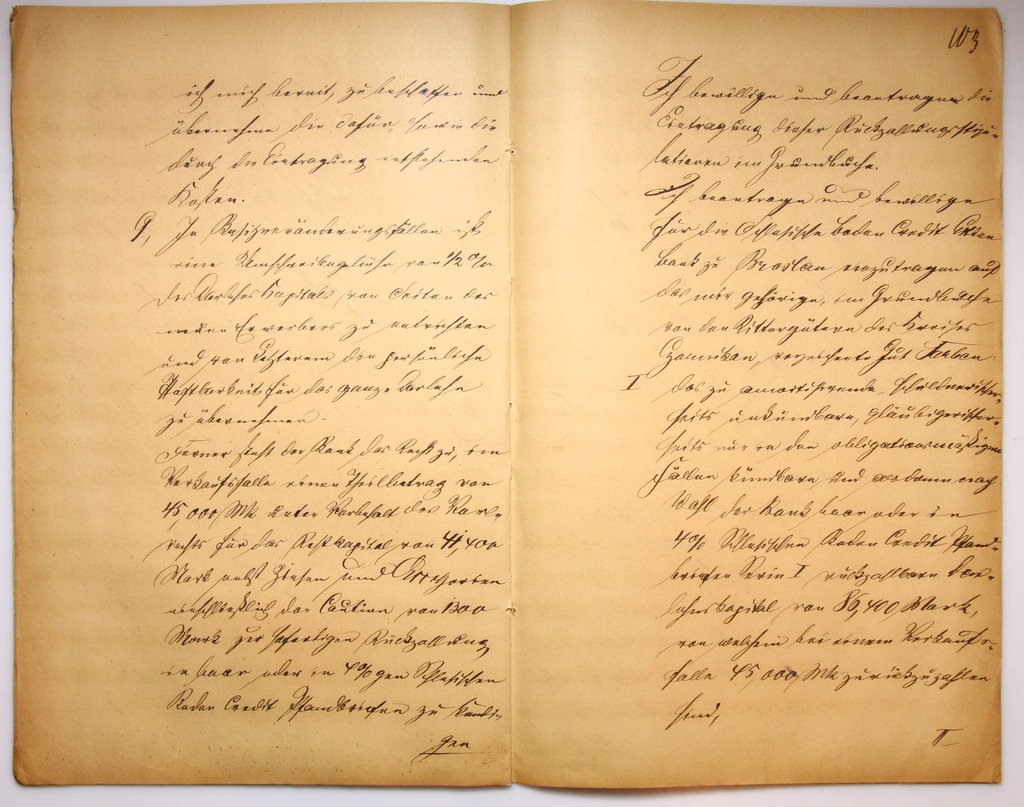 ich mich bereit, zu beschaffen und
übernehme die dafür sowie die
durch die Eintragung entstehenden
Kosten.
9, In Besitzveränderungsfällen ist
eine Umschreibegebühr von 1/2 %
des Darlehns Kapitals von Seiten des
neuen Erwerbers zu entrichten
und von Letzterem die persönliche
Haftbarkeit für das ganze Darlehn
zu übernehmen.
Ferner steht der Bank das Recht zu, im
Verkaufsfalle einen Theilbetrag von
45,000 Mk unter Vorbehalt des Vor-
rechts für das Restkapital von 41,400
Mark nebst Zinsen und
einschließlich der Caution von 1300
Mark zur sofortigen Rückzahlung
in baar oder in 4%gen Schlesischen
Boden Credit Pfandbriefen zu kündi-
gen
103
Ich bewillige und beantrage die
Eintragung dieser Rückzahlungsstipu-
lationen im Grundbuche.
Ich beantrage und bewillige
für die Schlesische Boden Credit Actien
Bank zu Breslau einzutragen auf
das mir gehörige, im Grundbuche
von den Rittergütern des Kreises
Czarnikau, verzeichnete Gut
I das zu amortisirende, schuldnerischer-
seits unkündbare, gläubigerischer-
seits nur in den obligationsmäßigen
Fällen kündbare und alsdann nach
Wahl der Bank baar oder in
4% Schlesischen Boden Credit Pfand-
briefen Serie I rückzahlbare Dar-
lehnskapital von 86,400 Mark,
von welchem bei einem Verkaufs-
falle 45 000 Mk zurückzuzahlen
sind,
II